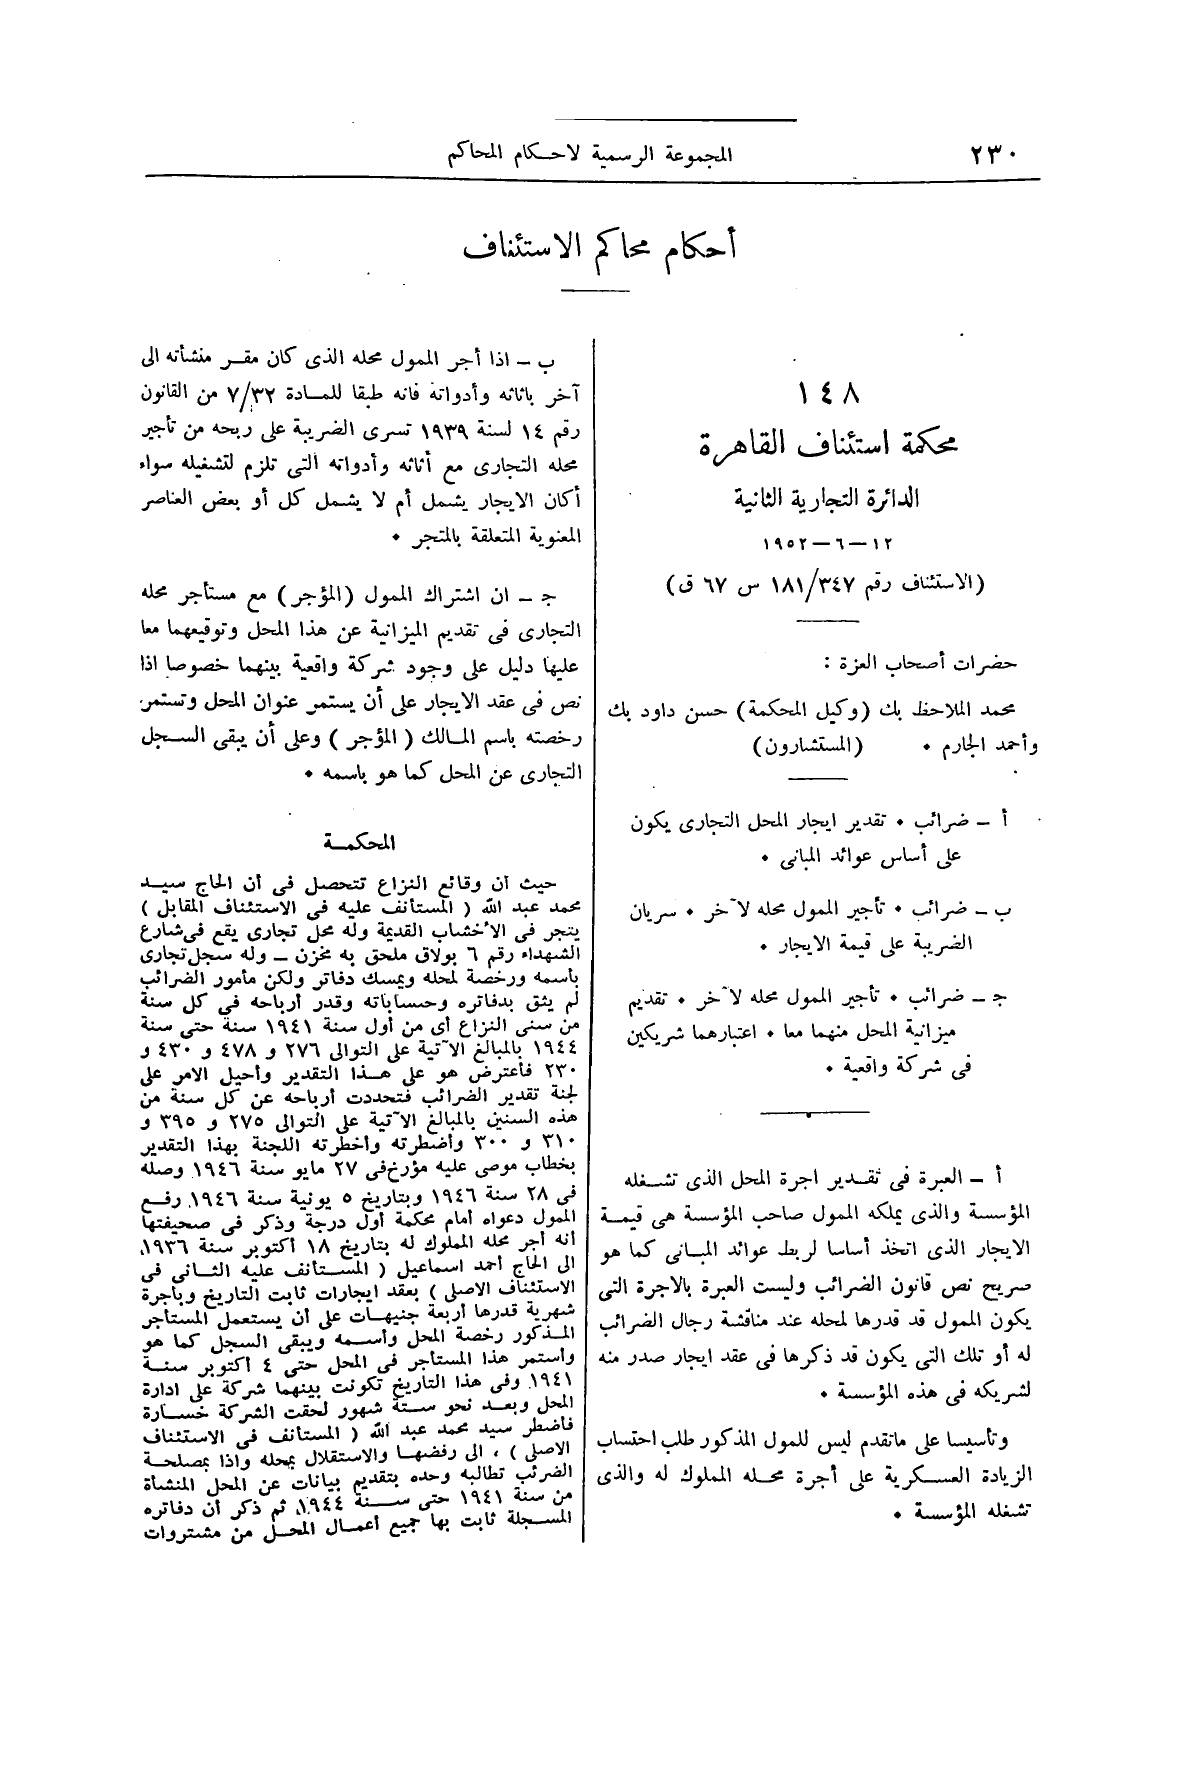 ٢٣٠
المجموعة الرسمية لاحكام المحاكم
أحكام محاكم الاستئناف
١٤٨
محكمة استئناف القاهرة
الدائرة التجارية الثانية
١٢-٦-١٩٥٢
(الاستئناف رقم ١٨١/٣٤٧ س ٦٧ ق)
حضرات أصحاب العزة :
محمد الملاحظ بك (وكيل المحكمة) حسن داود بك
وأحمد الجارم • (المستشارون)
أ - ضرائب • تقدير ايجار المحل التجارى يكون
على أساس عوائد المبانى •
ب - ضرائب • تأجير الممول محله لآخر • سريان
الضريبة على قيمة الايجار •
جـ - ضرائب • تأجير الممول محله لآخر • تقديم
ميزانية المحل منهما معا • اعتبارهما شريكين
فى شركة واقعية •
أ - العبرة فى تقدير اجرة المحل الذى تشغله
المؤسسة والذى يملكه الممول صاحب المؤسسة هى قيمة
الايجار الذى اتخذ أساسا لربط عوائد المبانى كما هو
صريح نص قانون الضرائب وليست العبرة بالاجرة التى
يكون الممول قد قدرها لمحله عند مناقشة رجال الضرائب
له أو تلك التى يكون قد ذكرها فى عقد ايجار صدر منه
لشريكه فى هذه المؤسسة •
وتأسيسا على ماتقدم ليس للمول المذكور طلب احتساب
الزيادة العسكرية على أجرة محله المملوك له والذى
تشغله المؤسسة •
ب - اذا أجر الممول محله الذى كان مقر منشأته الى
آخر باثاثه وأدواته فانه طبقا للمادة ٧/٣٢ من القانون
رقم ١٤ لسنة ١٩٣٩ تسرى الضريبة على ربحه من تأجير
محله التجارى مع أثاثه وأدواته التى تلزم لتشغيله سواء
أكان الايجار يشمل أم لا يشمل كل أو بعض العناصر
المعنوية المتعلقة بالمتجر •
جـ - ان اشتراك الممول (المؤجر) مع مستأجر محله
التجارى فى تقديم الميزانية عن هذا المحل وتوقيعهما معا
عليها دليل على وجود شركة واقعية بينهما خصوصا اذا
نص فى عقد الايجار على أن يستمر عنوان المحل وتستمر
رخصته باسم المالك ( المؤجر ) وعلى أن يبقى السجل
التجارى عن المحل كما هو باسمه •
المحكمة
حيث أن وقائع النزاع تتحصل فى أن الحاج سيد
محمد عبد الله ( المستأنف عليه فى الاستئناف المقابل )
يتجر فى الأخشاب القديمة وله محل تجارى يقع فى شارع
الشهداء رقم ٦ بولاق ملحق به مخزن - وله سجل تجارى
بأسمه ورخصة لمحله ويمسك دفاتر ولكن مأمور الضرائب
لم يثق بدفاتره وحساباته وقدر أرباحه فى كل سنة
من سنى النزاع أى من أول سنة ١٩٤١ سنة حتى سنة
١٩٤٤ بالمبالغ الآتية على التوالى ٢٧٦ و ٤٧٨ و ٤٣٠ و
٢٣٠ فأعترض هو على هذا التقدير وأحيل الامر على
لجنة تقدير الضرائب فتحددت أرباحه عن كل سنة من
هذه السنين بالمبالغ الآتية على التوالى ٢٧٥ و ٣٩٥ و
٣١٠ و ٣٠٠ وأضطرته وأخطرته اللجنة بهذا التقدير
بخطاب موصى عليه مؤرخ فى ٢٧ مايو سنة ١٩٤٦ وصله
فى ٢٨ سنة ١٩٤٦ وبتاريخ ٥ يونية سنة ١٩٤٦ رفع
الممول دعواه أمام محكمة أول درجة وذكر فى صحيفتها
أنه أجر محله المملوك له بتاريخ ١٨ أكتوبر سنة ١٩٣٦
الى الحاج أحمد اسماعيل ( المستأنف عليه الثانى فى
الاستئناف الاصلى ) بعقد ايجارات ثابت التاريخ وبأجرة
شهرية قدرها أربعة جنيهات على أن يستعمل المستأجر
المذكور رخصة المحل وأسمه ويبقى السجل كما هو
وأستمر هذا المستأجر فى المحل حتى ٤ أكتوبر سنة
١٩٤١ وفى هذا التاريخ تكونت بينهما شركة على ادارة
المحل وبعد نحو ستة شهور لحقت الشركة خسارة
فأضطر سيد محمد عبد الله ( المستأنف فى الاستئناف
الاصلى ) ، الى رفضها والاستقلال بمحله واذا بمصلحة
الضرئب تطالبه وحده بتقديم بيانات عن المحل المنشأة
من سنة ١٩٤١ حتى سنة ١٩٤٤ ثم ذكر أن دفاتره
المسجلة ثابت بها جميع أعمال المحل من مشتروات